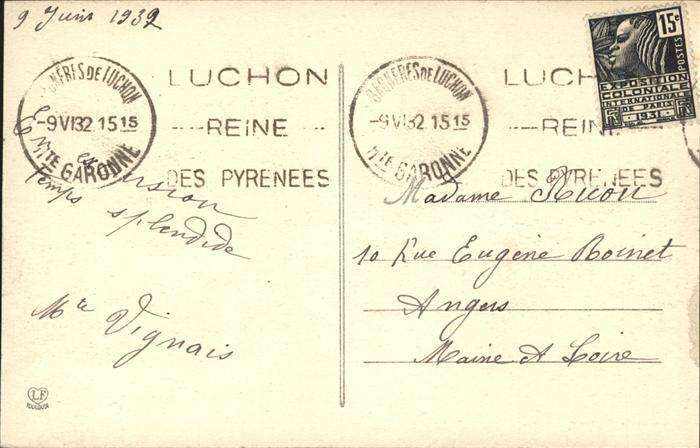 9 Juin 1932
BAGNÈRES DE LUCHON
-9 VI32 15 15
HTE GARONNE
LUCHON
REINE
DES PYRENEES
En excursion
temps splendide
Mte Vignais
LF
TOULOUSE
BAGNÈRES DE LUCHON
-9 VI32 15 15
HTE GARONNE
LUCH
REIN
DES PYRENEES
15c
POSTES
EXPOSITION
COLONIALE
INTERNATIONALE
DE PARIS
RF 1931 RF
Madame Ricou
10 Rue Eugène Boinet
Angers
Maine & Loire